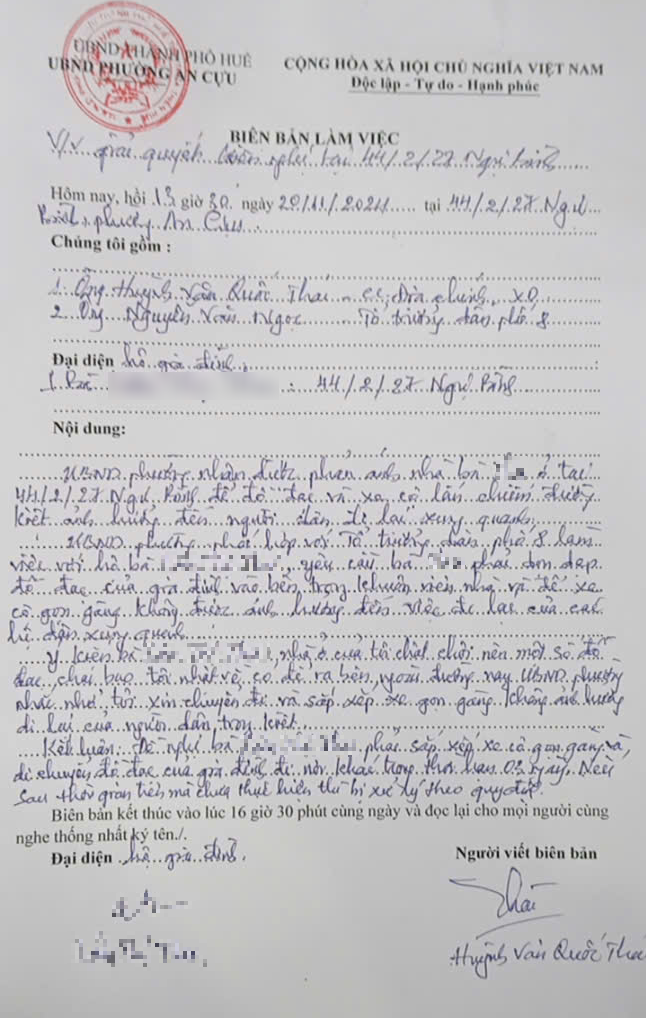 UBND THÀNH PHỐ HUẾ
UBND PHƯỜNG AN CỰU
CỘNG HÒA XÃ HỘI CHỦ NGHĨA VIỆT NAM
Độc lập - Tự do - Hạnh phúc
BIÊN BẢN LÀM VIỆC
V/v giải quyết kiến nghị tại 44/2/27 Ngự Bình
Hôm nay, hồi 15 giờ 30 ngày 20/11/2024 tại 44/2/27 Ngự
Bình, phường An Cựu
Chúng tôi gồm :
1. Ông Huỳnh Văn Quốc Thái - CC; Địa chính, XD
2. Ông Nguyễn Văn Ngọc Tổ trưởng dân phố 8
Đại diện hộ gia đình:
1. Bà : 44/2/27 Ngự Bình
Nội dung:
UBND phường nhận được phản ánh nhà bà ở tại
44/2/27 Ngự Bình để đồ đạc và xe cộ lấn chiếm đường
kiệt ảnh hưởng đến người dân đi lại xung quanh
UBND phường phối hợp với Tổ trưởng dân phố 8 làm
việc với hộ bà , yêu cầu bà phải dọn dẹp
đồ đạc của gia đình vào bên trong khuôn viên nhà và để xe
cộ gọn gàng không được ảnh hưởng đến việc đi lại của các
hộ dân xung quanh
Ý kiến bà , nhà ở của tôi chật chội nên một số đồ
đạc, chai bao tôi nhặt về có để ra bên ngoài đường nay UBND phường
nhắc nhở, tôi xin chuyển đi và sắp xếp xe gọn gàng không ảnh hưởng
đi lại của người dân trong kiệt
Kết luận: Đề nghị bà phải sắp xếp xe cộ gọn gàng và
di chuyển đồ đạc của gia đình đi nơi khác trong thời hạn 03 ngày. Nếu
sau thời gian trên mà chưa thực hiện thì bị xử lý theo quy định
Biên bản kết thúc vào lúc 16 giờ 30 phút cùng ngày và đọc lại cho mọi người cùng
nghe thống nhất ký tên./.
Đại diện hộ gia đình.
Người viết biên bản
Thái
Huỳnh Văn Quốc Thái